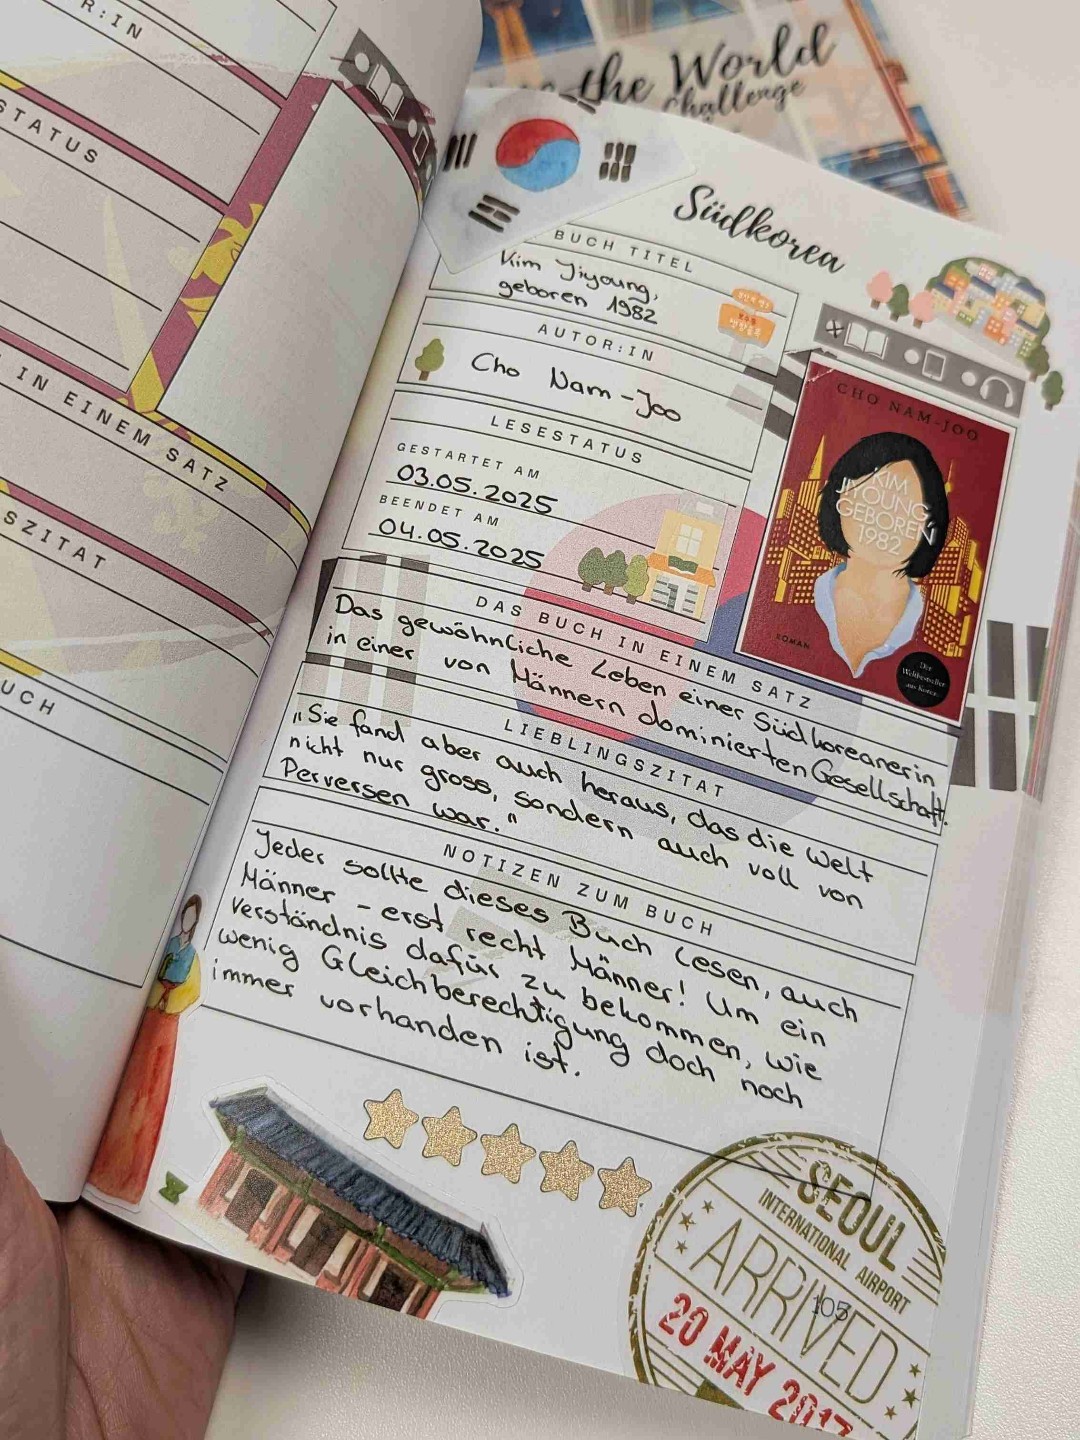 R:IN
STATUS
IN EINEM SATZ
SZITAT
UCH
the World
Challenge
Südkorea
BUCH TITEL
Kim Jiyoung,
geboren 1982
AUTOR:IN
Cho Nam-Joo
LESESTATUS
GESTARTET AM
03.05.2025
BEENDET AM
04.05.2025
CHO NAM-JOO
KIM
JIYOUNG,
GEBOREN
1982
ROMAN
Der
Weltbestseller
aus Korea
DAS BUCH IN EINEM SATZ
Das gewöhnliche Leben einer Südkoreanerin
in einer von Männern dominierten Gesellschaft.
LIEBLINGSZITAT
„Sie fand aber auch heraus, das die Welt
nicht nur gross, sondern auch voll von
Perversen war."
NOTIZEN ZUM BUCH
Jeder sollte dieses Buch lesen, auch
Männer - erst recht Männer! Um ein
Verständnis dafür zu bekommen, wie
wenig Gleichberechtigung doch noch
immer vorhanden ist.
SEOUL
INTERNATIONAL AIRPORT
ARRIVED
105
20 MAY 2017